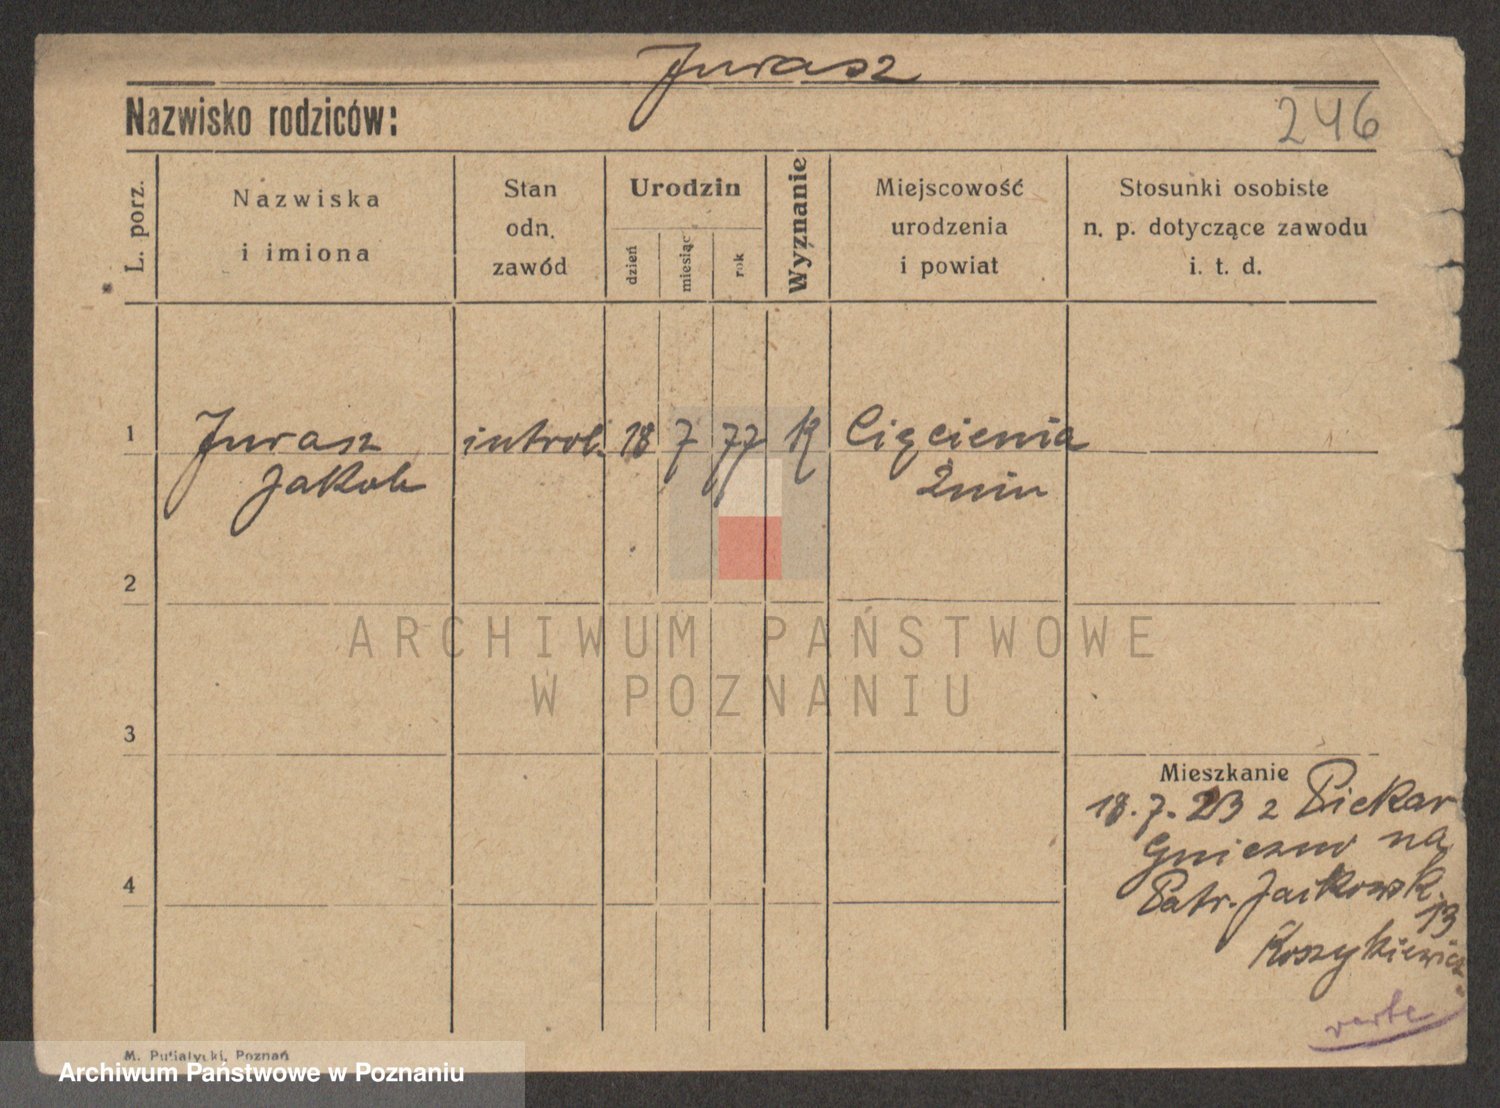 Jurasz
Nazwisko rodziców:
246
L. porz.
Nazwiska
i imiona
Stan
odn.
zawód
Urodzin
dzień
miesiąc
rok
Wyznanie
Miejscowość
urodzenia
i powiat
Stosunki osobiste
n. p. dotyczące zawodu
i. t. d.
1 Jurasz introl. 18 7 77 K
Jakob Żnin
2
ARCHIWUM PAŃSTWOWE
W POZNANIU
3
Mieszkanie
18.7.23 z Piekar
Gniezno na
Patr. Jackowsk.
13
Koszykiewicz
4
verte
M. Putiatycki, Poznań
Archiwum Państwowe w Poznaniu